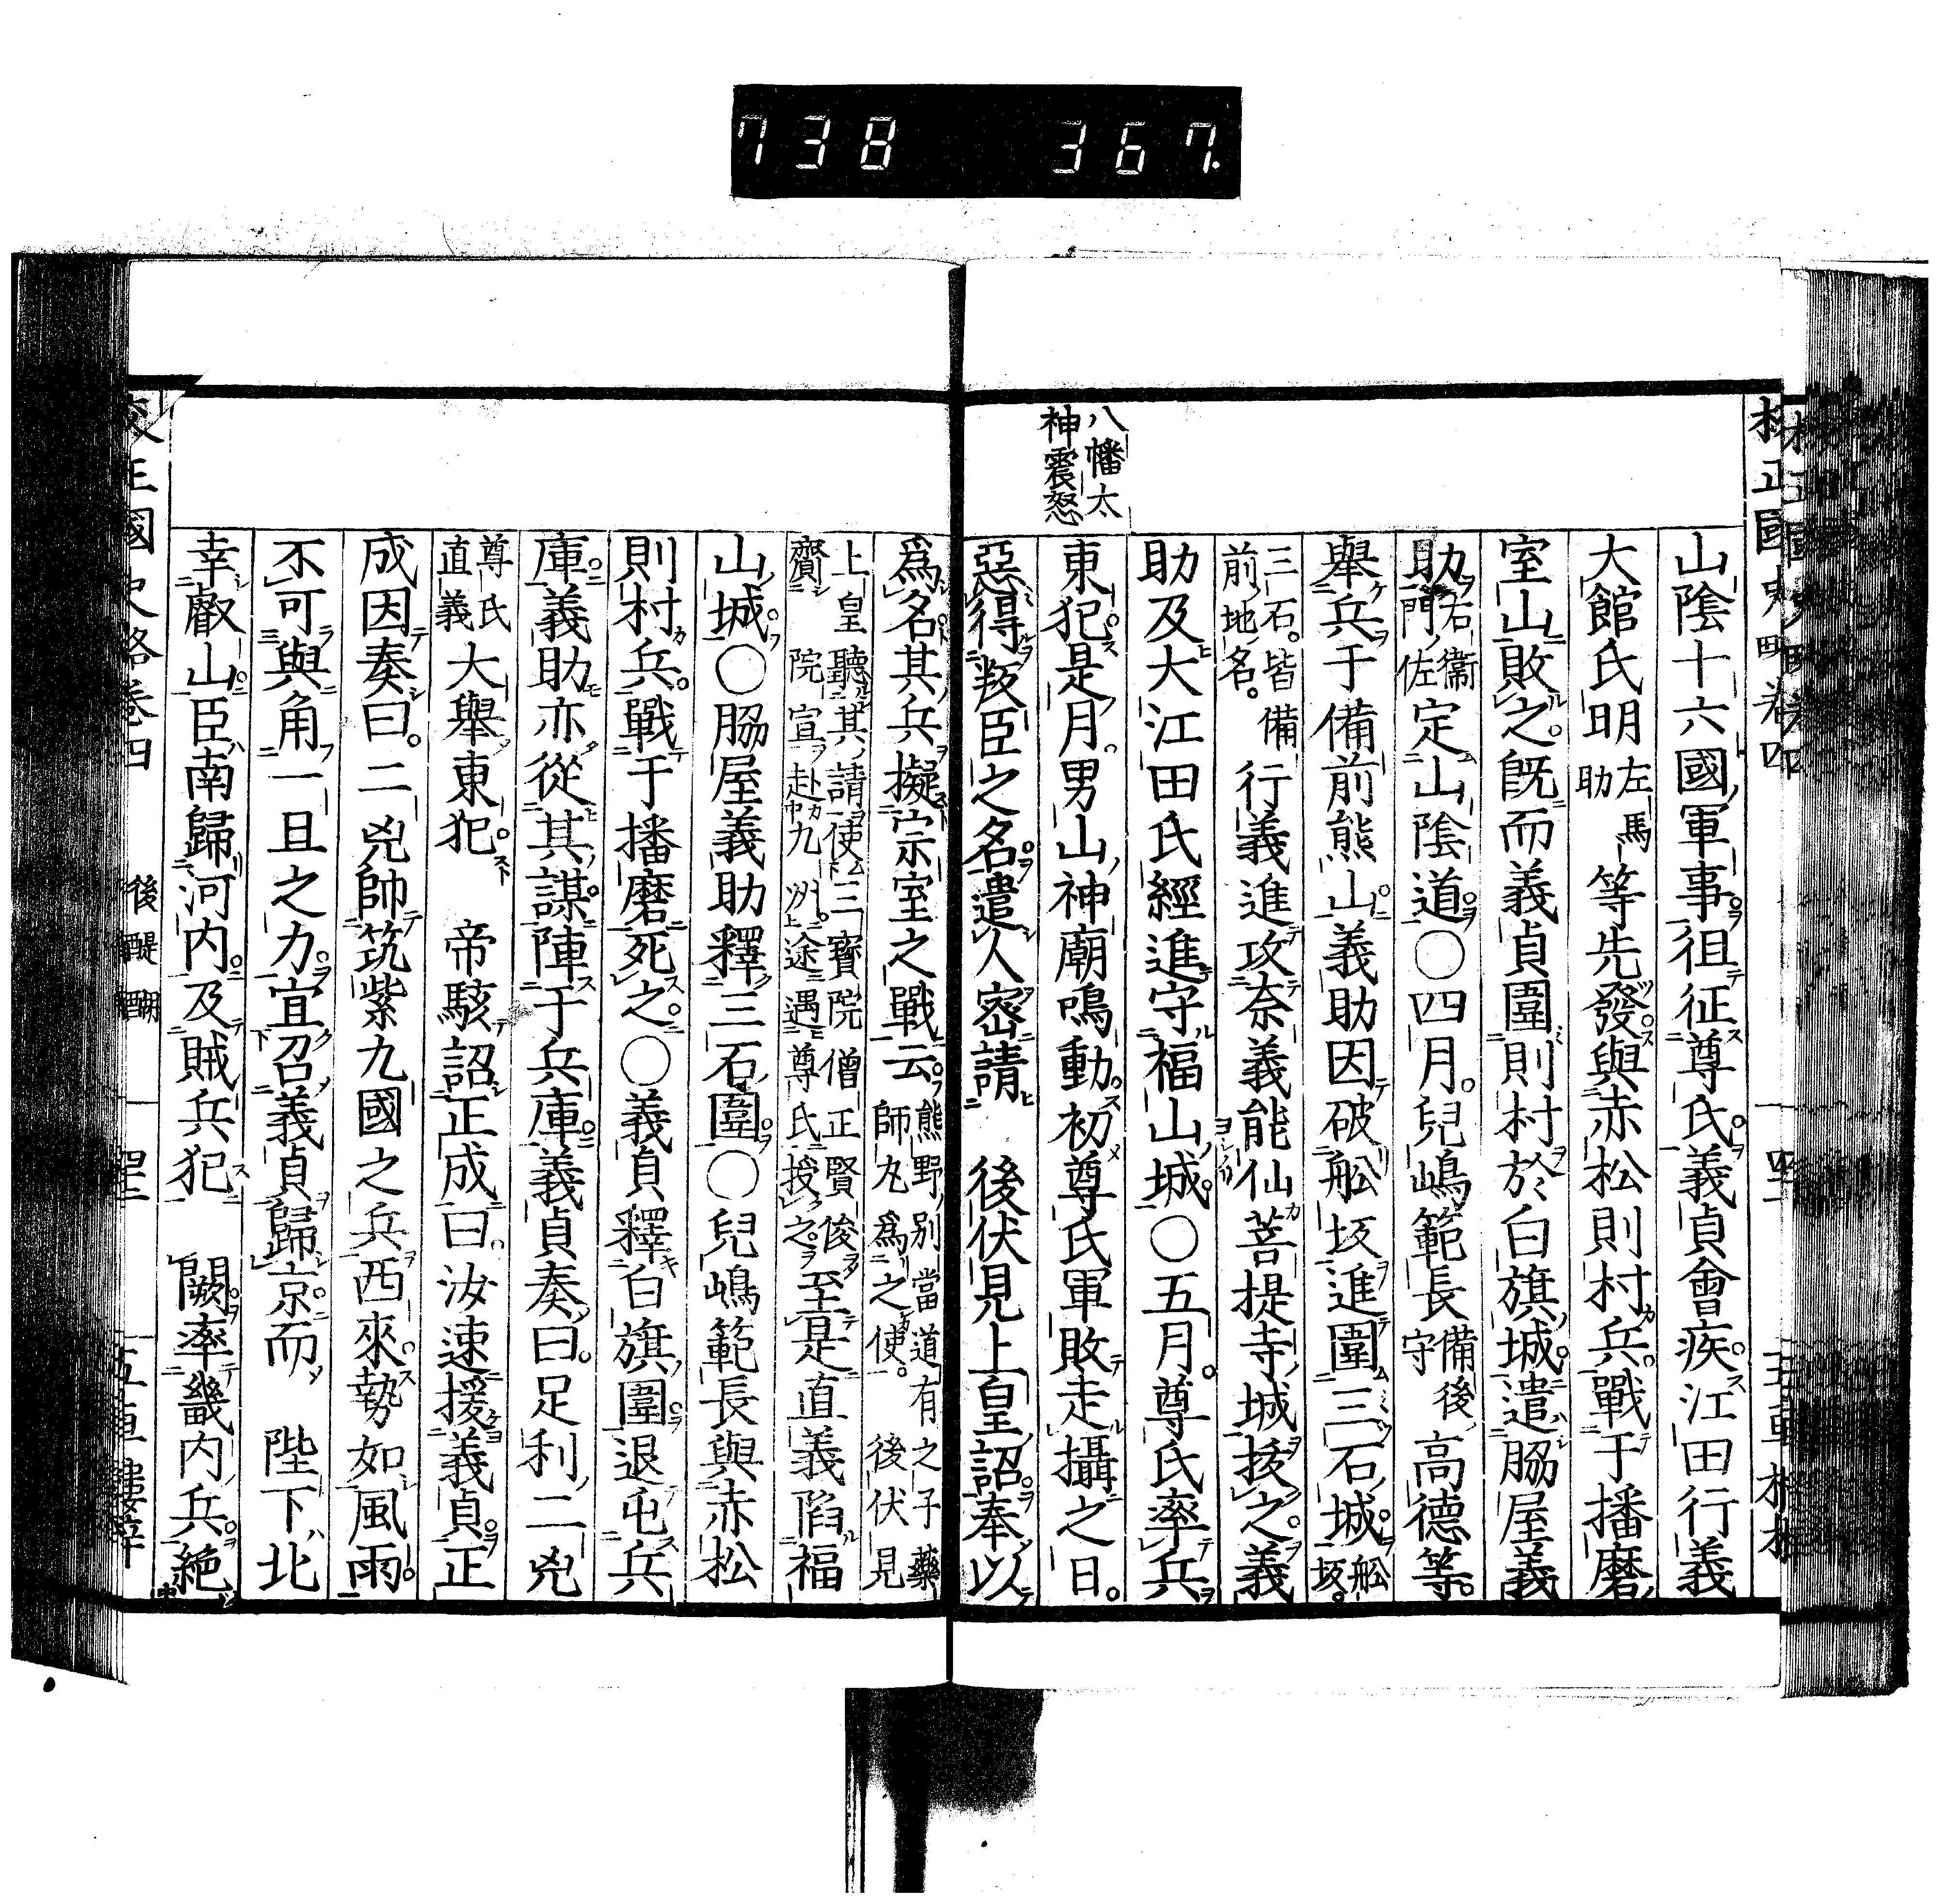 738 367
校正國史略卷四
八幡太
神震怒
山陰十六國軍事徂征尊氏義貞會疾江田行義
大館氏明左馬助等先發與赤松則村兵戰于播磨
室山敗之既而義貞圍則村於白旗城遣脇屋義
助右衞門佐定山陰道〇四月兒嶋範長備後守高德等
舉兵于備前熊山義助因破舩坂進圍三石城舩坂
三石皆備前地名行義進攻奈義能仙菩提寺城拔之義
助及大江田氏經進守福山城〇五月尊氏率兵
東犯是月男山神廟鳴動初尊氏軍敗走攝之日
惡得叛臣之名遣人密請 後伏見上皇詔奉以
爲名其兵擬宗室之戰云熊野別當道有之子藥師丸爲之使後伏見
上皇聽其請使三寶院僧正賢俊齎院宣赴九州途遇尊氏授之至是直義陷福
山城〇脇屋義助釋三石圍〇兒嶋範長與赤松
則村兵戰于播磨死之〇義貞釋白旗圍退屯兵
庫義助亦從其謀陣于兵庫義貞奏曰足利二兇
尊氏直義大舉東犯 帝駭詔正成曰汝速援義貞正
成因奏曰二兇帥筑紫九國之兵西來勢如風雨
不可與角一旦之力宜召義貞歸京而 陛下北
幸叡山臣南歸河内及賊兵犯 闕率畿内兵絕
校正國史略卷四 後醍醐 五車樓梓